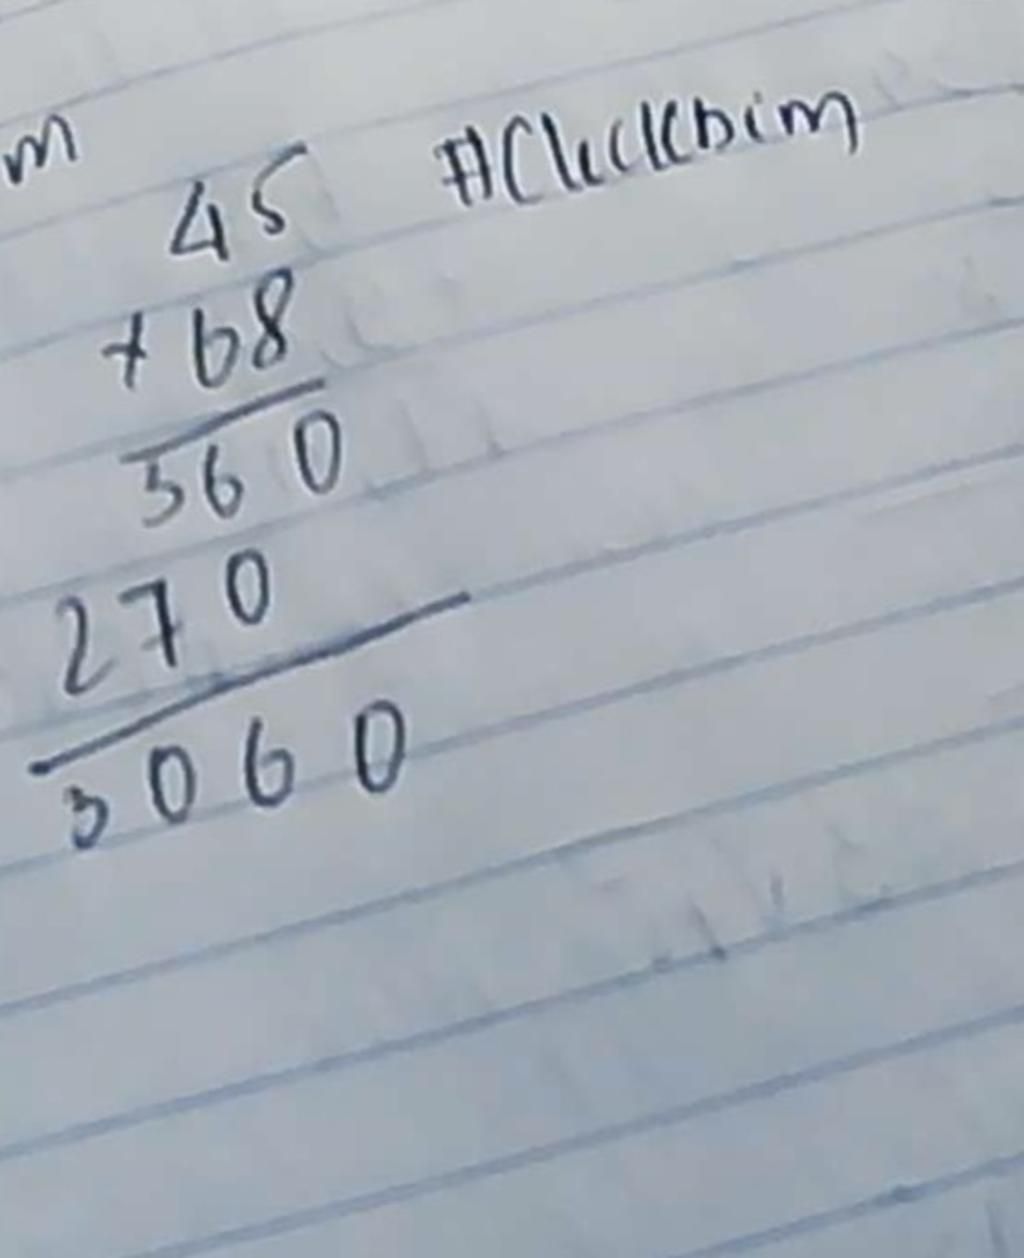 m
45 #Clickbim
+ 68
360
270
3060